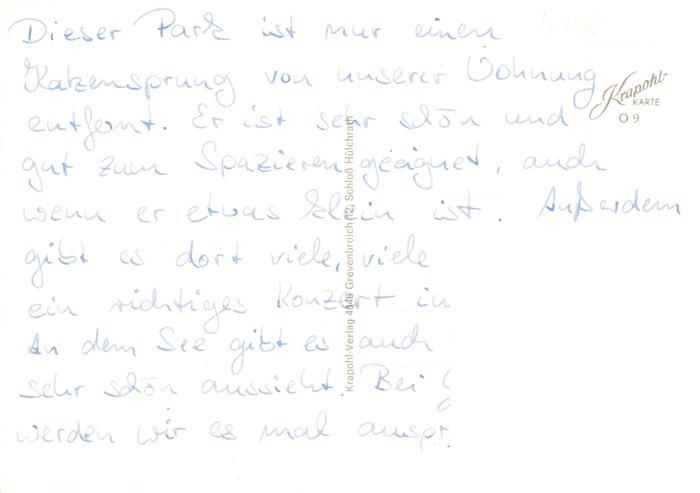 Dieser Park ist nur einen
Katzensprung von unserer Wohnung
entfernt. Er ist sehr schön und
gut zum Spazieren geeignet, auch
wenn er etwas klein ist. Außerdem
gibt es dort viele, viele
ein richtiges Konzert in
An dem See gibt es auch
sehr schön aussieht. Bei
werden wir es mal auspr
Krapohl-
KARTE
O 9
Krapohl-Verlag 4048 Grevenbroich 12, Schloß Hülchrath